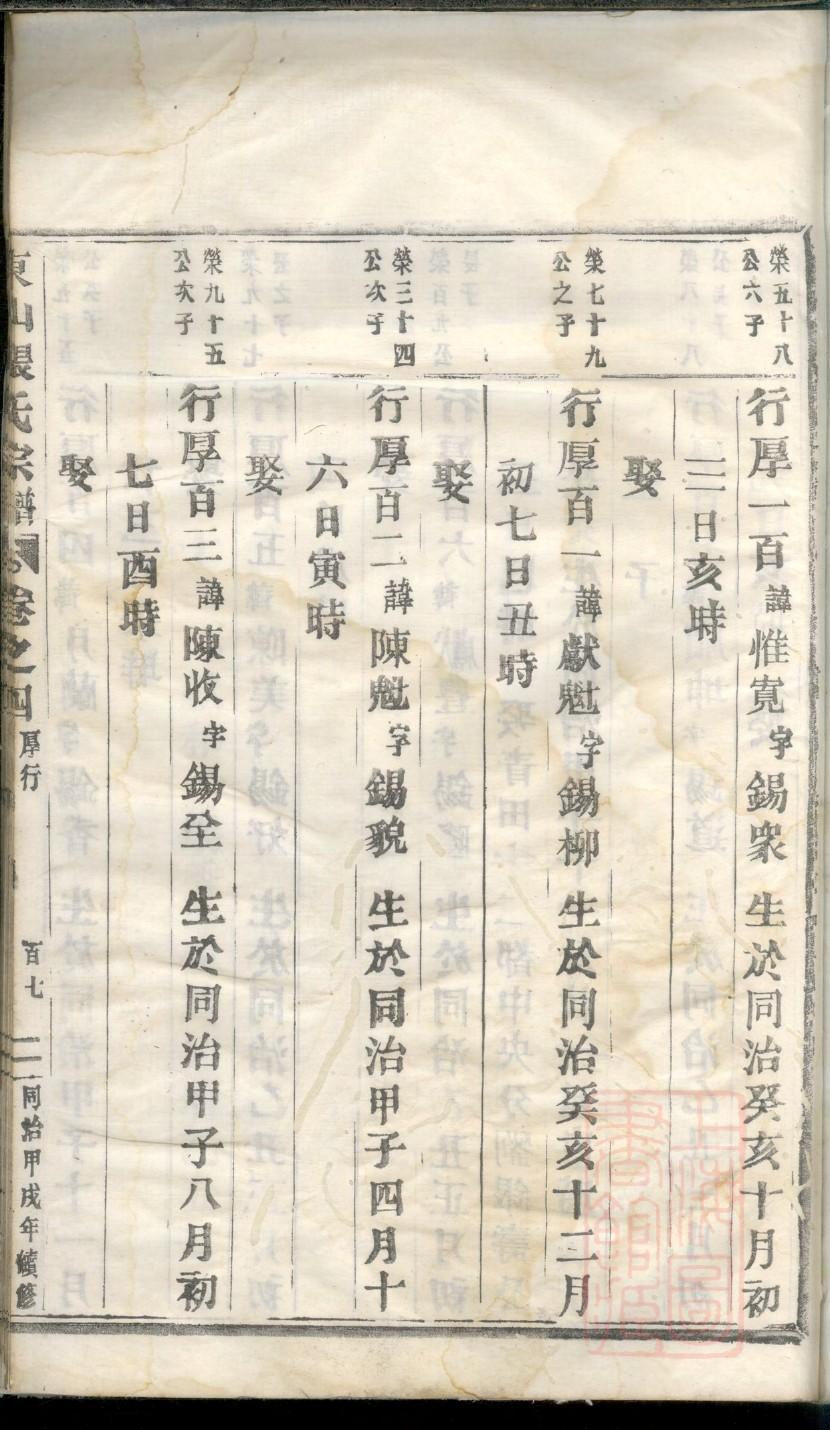 榮五十八
公六子
行厚一百諱惟寬字錫衆 生於同治癸亥十月初
三日亥時
娶
榮七十九
公之子
行厚百一諱獻魁字錫柳 生於同治癸亥十二月
初七日丑時
娶
榮三十四
公次子
行厚百二諱陳魁字錫貌 生於同治甲子四月十
六日寅時
娶
榮九十五
公次子
行厚百三諱陳收字錫全 生於同治甲子八月初
七日酉時
娶
東山張氏宗譜 卷之四 厚行 百七 同治甲戌年續修